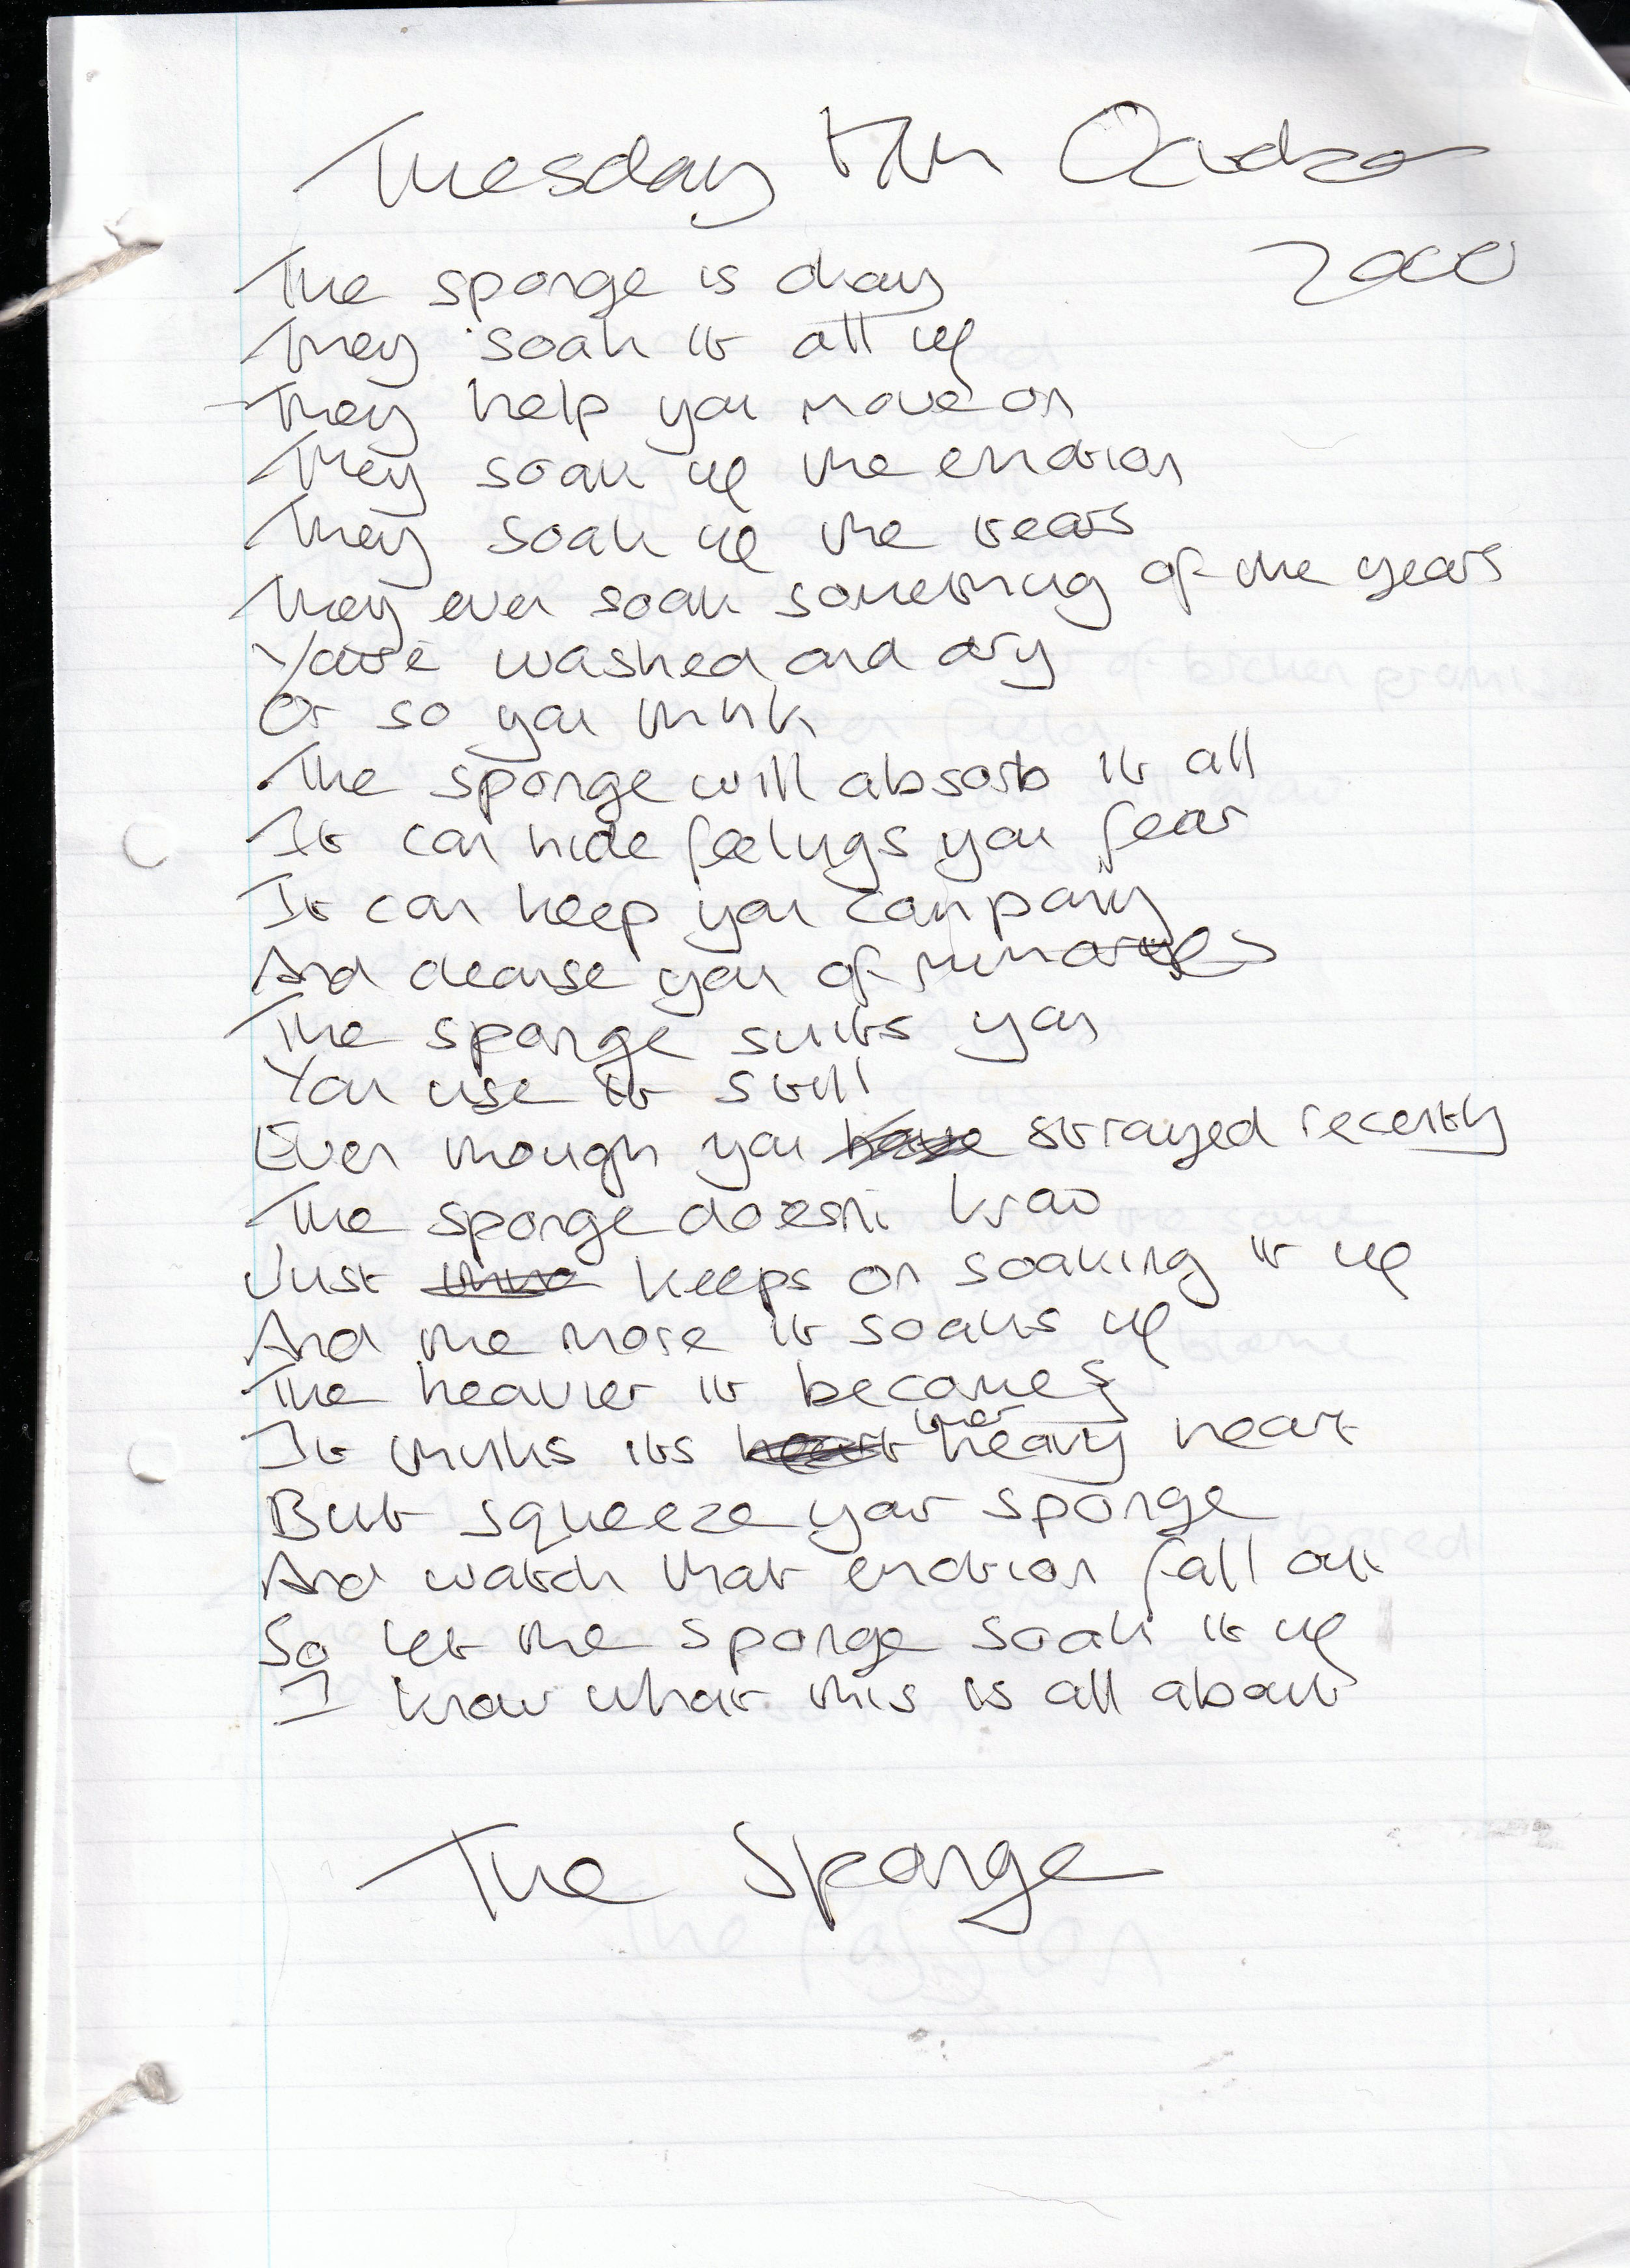 Tuesday 17th October
2000
The sponge is okay
They soak it all up
They help you move on
They soak up the emotion
They soak up the tears
They even soak something of the years
You're washed and dry
Or so you think
The sponge will absorb it all
It can hide feelings you fear
It can keep you company
And cleanse you of memories
The sponge suits you
You use it still
Even though you have strayed recently
The sponge doesn't know
Just keeps on soaking it up
And the more it soaks up
The heavier it becomes
It thinks its heart heavy heart
But squeeze your sponge
And watch that emotion fall out
So let the sponge soak it up
I know what this is all about
The Sponge